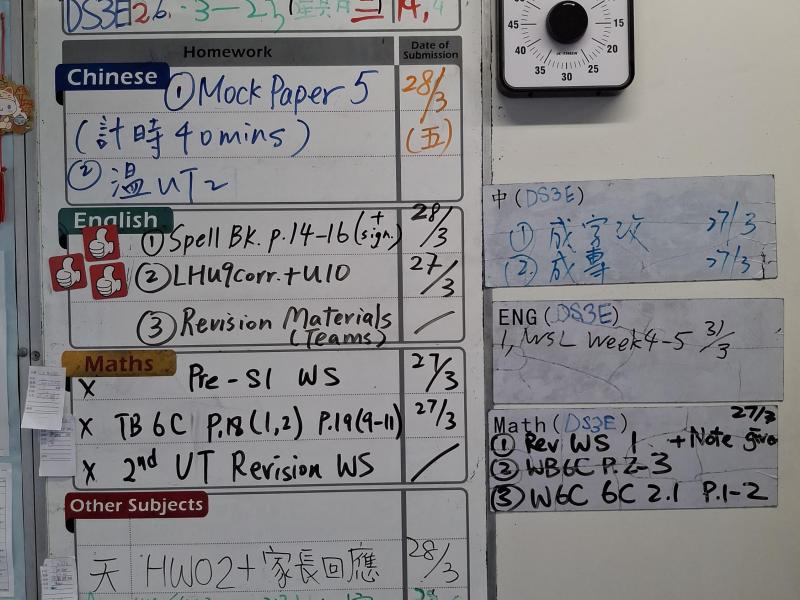 DS3E 26·3-23
Homework
Date of Submission
Chinese
① Mock Paper 5 28/3
(計時40mins) (五)
② 溫UT2
English
① Spell Bk. p.14-16 (+ sign.) 28/3
② LHU9corr.+U10 27/3
③ Revision Materials /
(Teams)
Maths
x Pre-S1 WS 27/3
x TB 6C P.18(1,2) P.19(9-11) 27/3
x 2nd UT Revision WS /
Other Subjects
天 HW02+家長回應 28/3
45 15
40 20
35 30 25
中(DS3E)
① 成字改 27/3
② 成專 27/3
ENG(DS3E)
1, NSL week4-5 31/3
Math(DS3E) 27/3
① Rev WS 1 +Note
② WB6C P.2-3
③ W6C 6C 2.1 P.1-2